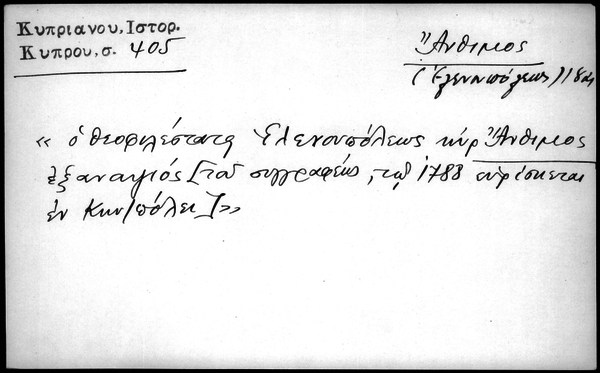 Κυπριανου, Ιστορ.
Κυπρου, σ. 405
Ἄνθιμος
(Ἑλενουπόλεως) 18
« ὁ θεοφιλέστατ. Ἑλενουπόλεως κύρ Ἄνθιμος
ἐξαναψιός [τοῦ συγγραφέως, τῷ 1788 εὑρίσκεται
ἐν Κων/πόλει]»